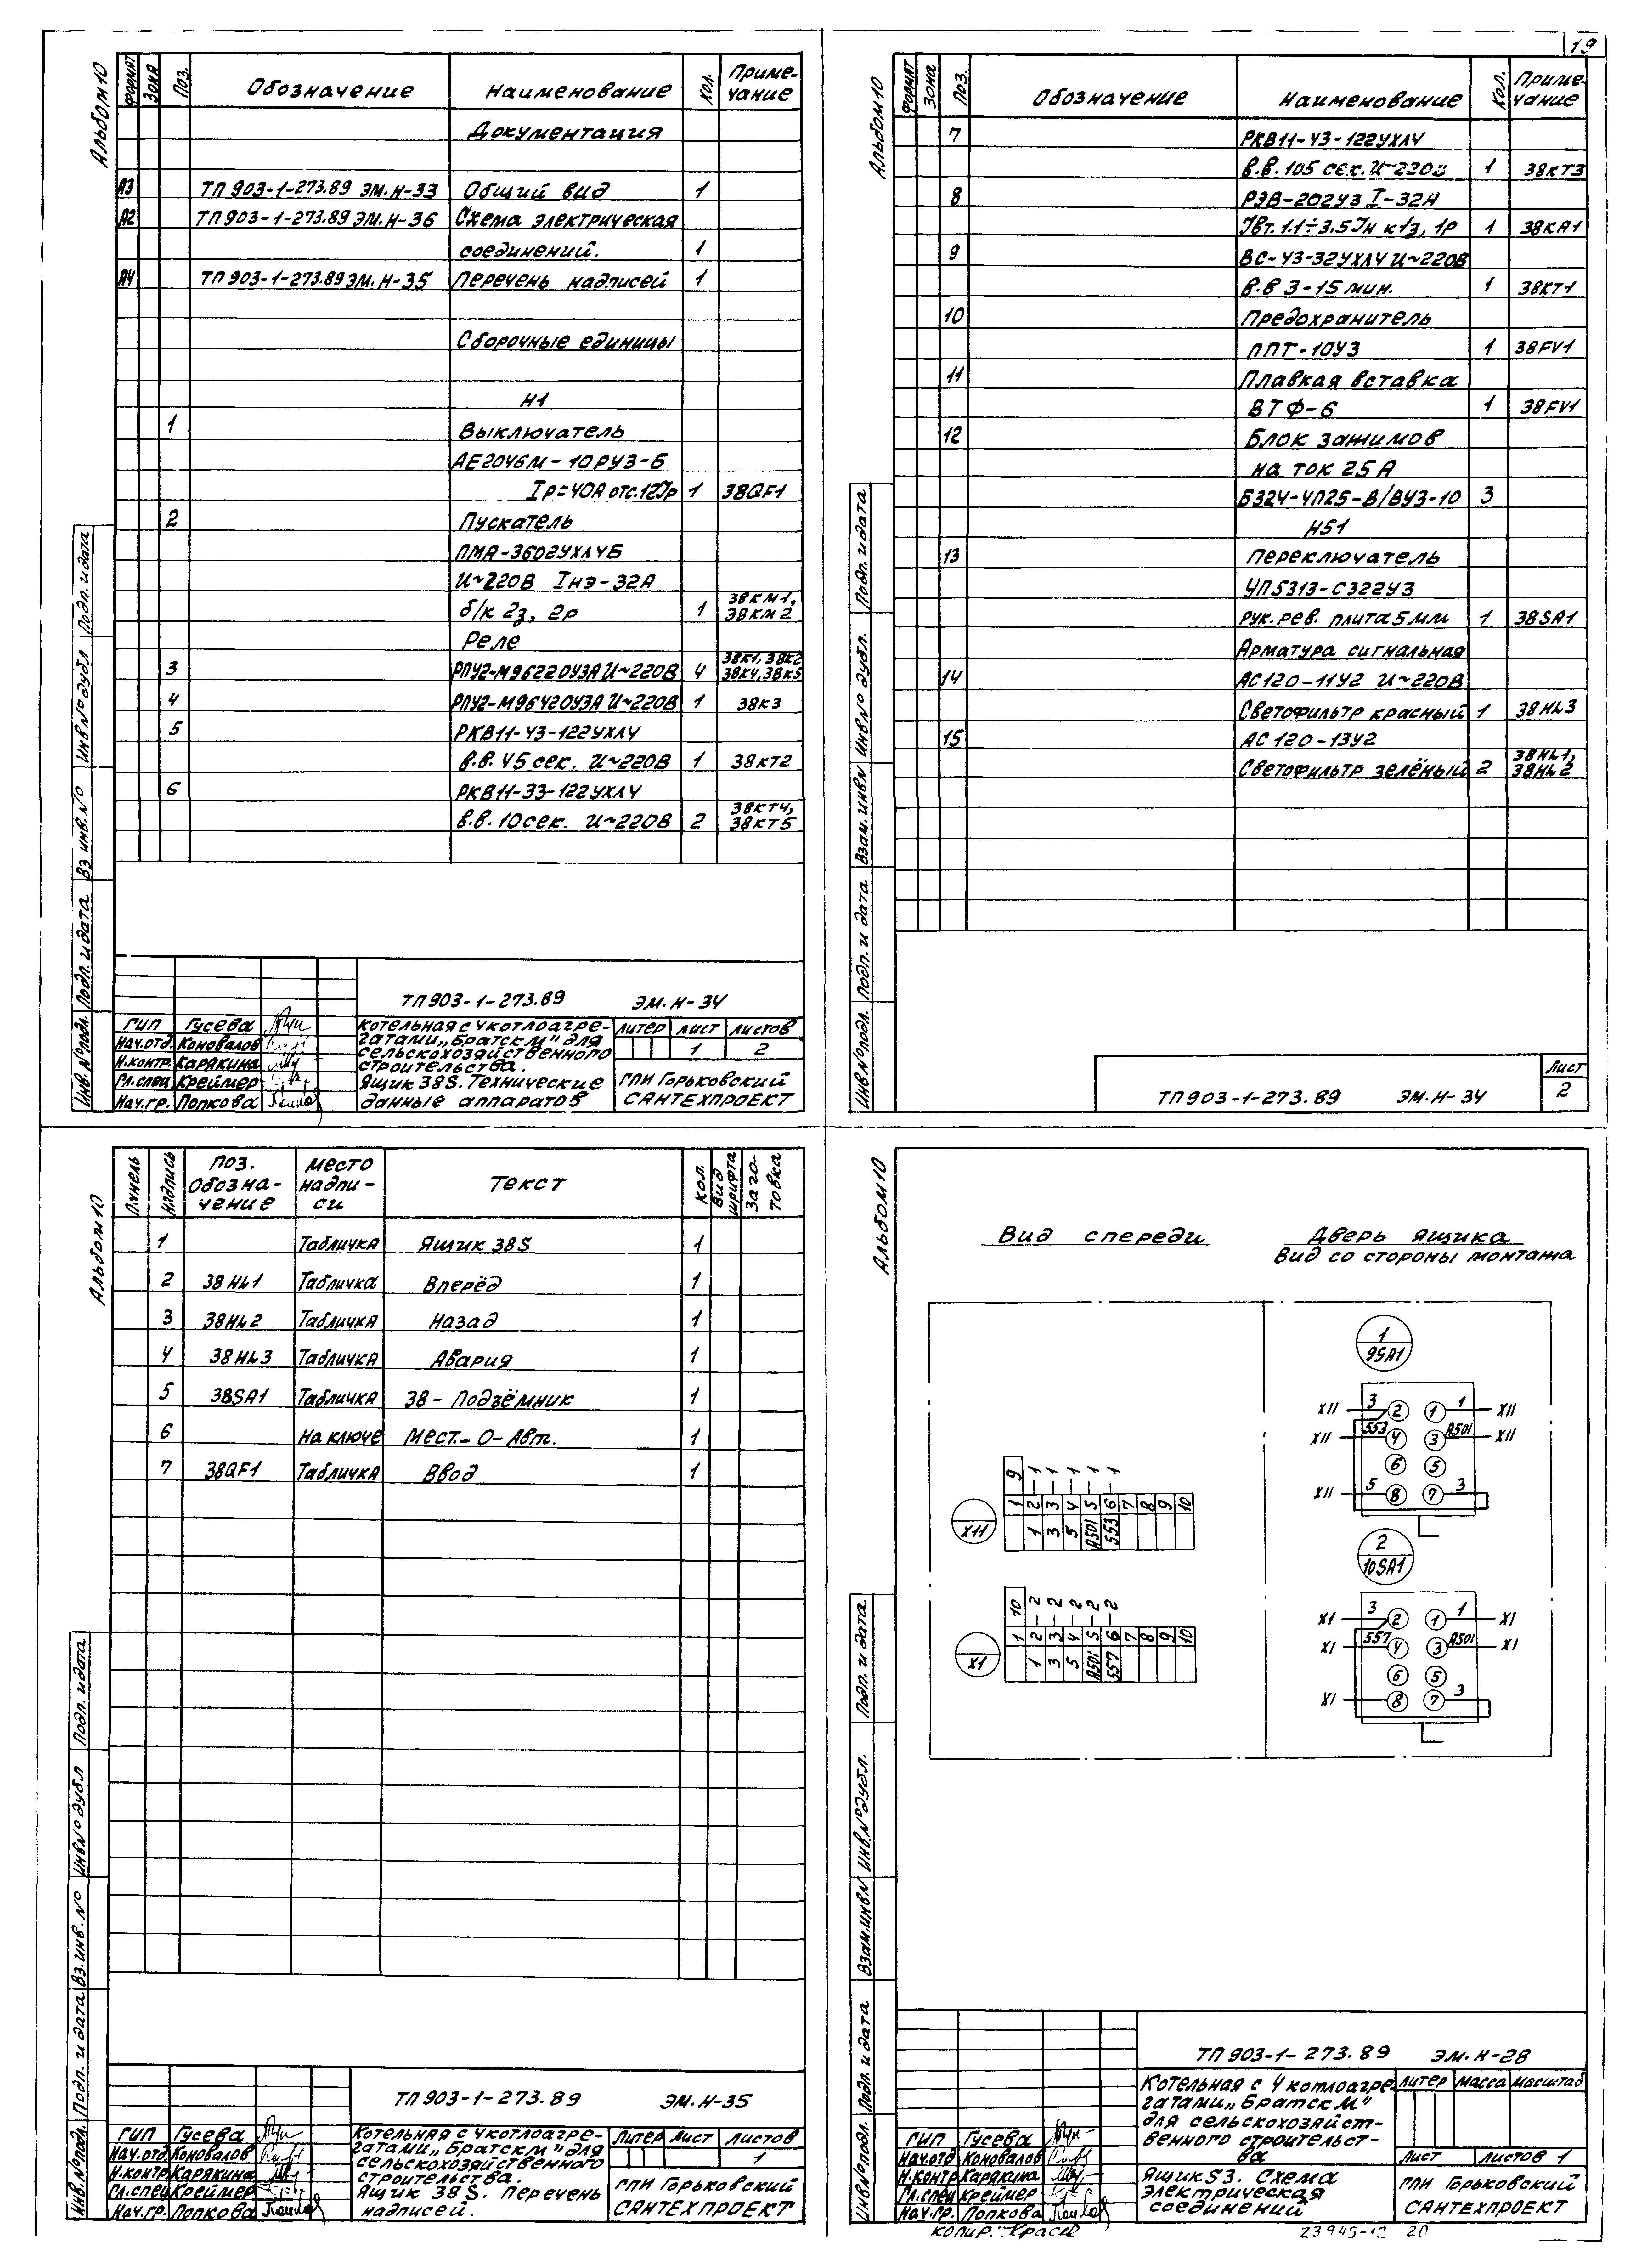 19
Альбом 10
Формат Зона Поз. Обозначение Наименование Кол. Примечание
Документация
А3 ТП 903-1-273.89 ЭМ.Н-33 Общий вид 1
А2 ТП 903-1-273.89 ЭМ.Н-36 Схема электрическая
соединений. 1
А4 ТП 903-1-273.89 ЭМ.Н-35 Перечень надписей 1
Сборочные единицы
Н1
1 Выключатель
АЕ2046М-10РУ3-Б
Iр=40А отс.12Iр 1 38QF1
2 Пускатель
ПМА-3602УХЛ4Б
U~220В Iнэ-32А
б/к 2з, 2р 1 38КМ1, 38КМ2
Реле
3 РПУ2-М96220У3А U~220В 4 38К1, 38К2 38К4, 38К5
4 РПУ2-М96420У3А U~220В 1 38К3
5 РКВ11-43-122УХЛ4
в.в. 45 сек. U~220В 1 38КТ2
6 РКВ11-33-122УХЛ4
в.в. 10 сек. U~220В 2 38КТ4, 38КТ5
Инв.№подл. Подп. и дата Вз инв.№ Инв№дубл Подп. и дата
ТП 903-1-273.89 ЭМ.Н-34
ГИП Гусева
Нач.отд. Коновалов
Н.контр. Карякина
Гл.спец Креймер
Нач.гр. Попкова
Котельная с 4 котлоагре-
гатами „Братск М" для
сельскохозяйственного
строительства.
Ящик 38S. Технические
данные аппаратов
Литер Лист Листов
1 2
ГПИ Горьковский
САНТЕХПРОЕКТ
Альбом 10
Формат Зона Поз. Обозначение Наименование Кол. Примечание
7 РКВ11-43-122УХЛ4
в.в. 105 сек. U~220В 1 38КТ3
8 РЭВ-202У3 I-32А
Iвт. 1.1÷3.5Iн к1з, 1р 1 38КА1
9 ВС-43-32УХЛ4 U~220В
в.в 3-15 мин. 1 38КТ1
10 Предохранитель
ППТ-10У3 1 38FV1
11 Плавкая вставка
ВТФ-6 1 38FV1
12 Блок зажимов
на ток 25А
БЗ24-4П25-В/ВУ3-10 3
Н51
13 Переключатель
УП5313-С322У3
рук. рев. плита 5 мм 1 38SA1
Арматура сигнальная
14 АС120-11У2 U~220В
Светофильтр красный 1 38HL3
15 АС120-13У2
Светофильтр зелёный 2 38HL1, 38HL2
Инв.№подл. Подп. и дата Взам. инв№ Инв№дубл. Подп. и дата
ТП 903-1-273.89 ЭМ.Н-34
Лист
2
Альбом 10
Панель Надпись Поз. Обозначение Место надписи Текст Кол. Вид шрифта Заготовка
1 Табличка Ящик 38S 1
2 38HL1 Табличка Вперёд 1
3 38HL2 Табличка Назад 1
4 38HL3 Табличка Авария 1
5 38SA1 Табличка 38-Подъёмник 1
6 На ключе Мест.-О-Авт. 1
7 38QF1 Табличка Ввод 1
Инв.№подл. Подп. и дата Вз.инв.№ Инв№дубл Подп. и дата
ТП 903-1-273.89 ЭМ.Н-35
ГИП Гусева
Нач.отд Коновалов
Н.контр Карякина
Гл.спец Креймер
Нач.гр. Попкова
Котельная с 4 котлоагре-
гатами „Братск М" для
сельскохозяйственного
строительства.
Ящик 38S. Перечень
надписей.
Литер Лист Листов
1
ГПИ Горьковский
САНТЕХПРОЕКТ
Альбом 10
Вид спереди
Дверь ящика
Вид со стороны монтажа
1
9SA1
XII 3 2 1 1 XII
XII 553 4 3 А501 XII
6 5
XII 5 8 7 3
2
10SA1
XI 3 2 1 1 XI
XI 557 4 3 А501 XI
6 5
XI 8 7 3
XII
9
1 2 3 4 5 6 7 8 9 10
1 3 5 А501 553
1 1 1 1 1
XI
10
1 2 3 4 5 6 7 8 9 10
1 3 5 А501 557
2 2 2 2 2
Инв№подл. Подп. и дата Взам.инв№ Инв№дубл. Подп. и дата
ТП 903-1-273.89 ЭМ.Н-28
ГИП Гусева
Нач.отд Коновалов
Н.контр Карякина
Гл.спец Креймер
Нач.гр. Попкова
Котельная с 4 котлоагре-
гатами „Братск М"
для сельскохозяйст-
венного строительст-
ва
Ящик S3. Схема
электрическая
соединений
Литер Масса Масштаб
Лист Листов 1
ГПИ Горьковский
САНТЕХПРОЕКТ
Копир.
20